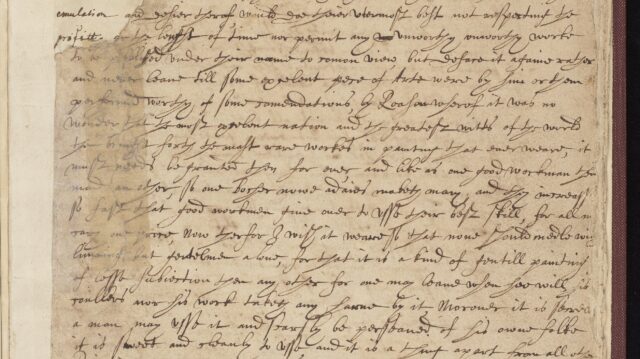 emulation and desier therof would doe their uttermost best not respecting the
profitt or the lenght of time nor permit any unworthy unworthy worke
to be published under their name to comon view, but deface it againe rather
and never leave till some excelent peece of Arte weare by him or them
performed worthy of some comendations by Reason wherof it was no
wonder that the most excelent nation and the greatest witts of the world
then brought forth the most rare workes in painting that ever weare, it
must needs be graunted then for ever, and like as one good workman then
mad an other so one bocher nowe adaies maketh many, and they increase
so fast that good workmen give over to Usse their best skill, for all m
cary one price, Now therfor I wish it weare so that none should medle with
limning but gentelmen alone, for that it is a kind of gentill painting
of lesse subiection then any other for one may leave when hee will his
coullers nor his work taketh any harme by it Moreover it is secret
a man may Usse it and scarsly be perseaved of his owne folke
it is sweet and cleanly to Usse and it is a thing apart from all othe